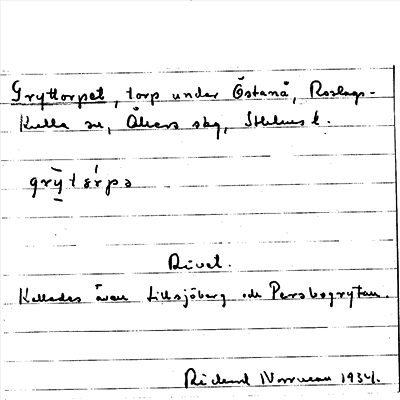 Gryttorpet, torp under Östanå, Roslags-
Kulla sn, Åkers skg, Sthlms l.
grȳtɛ́rpə
Rivet.
Kallades även Lillsjöberg och Persbogrytan.
Rickard Norrman 1934.